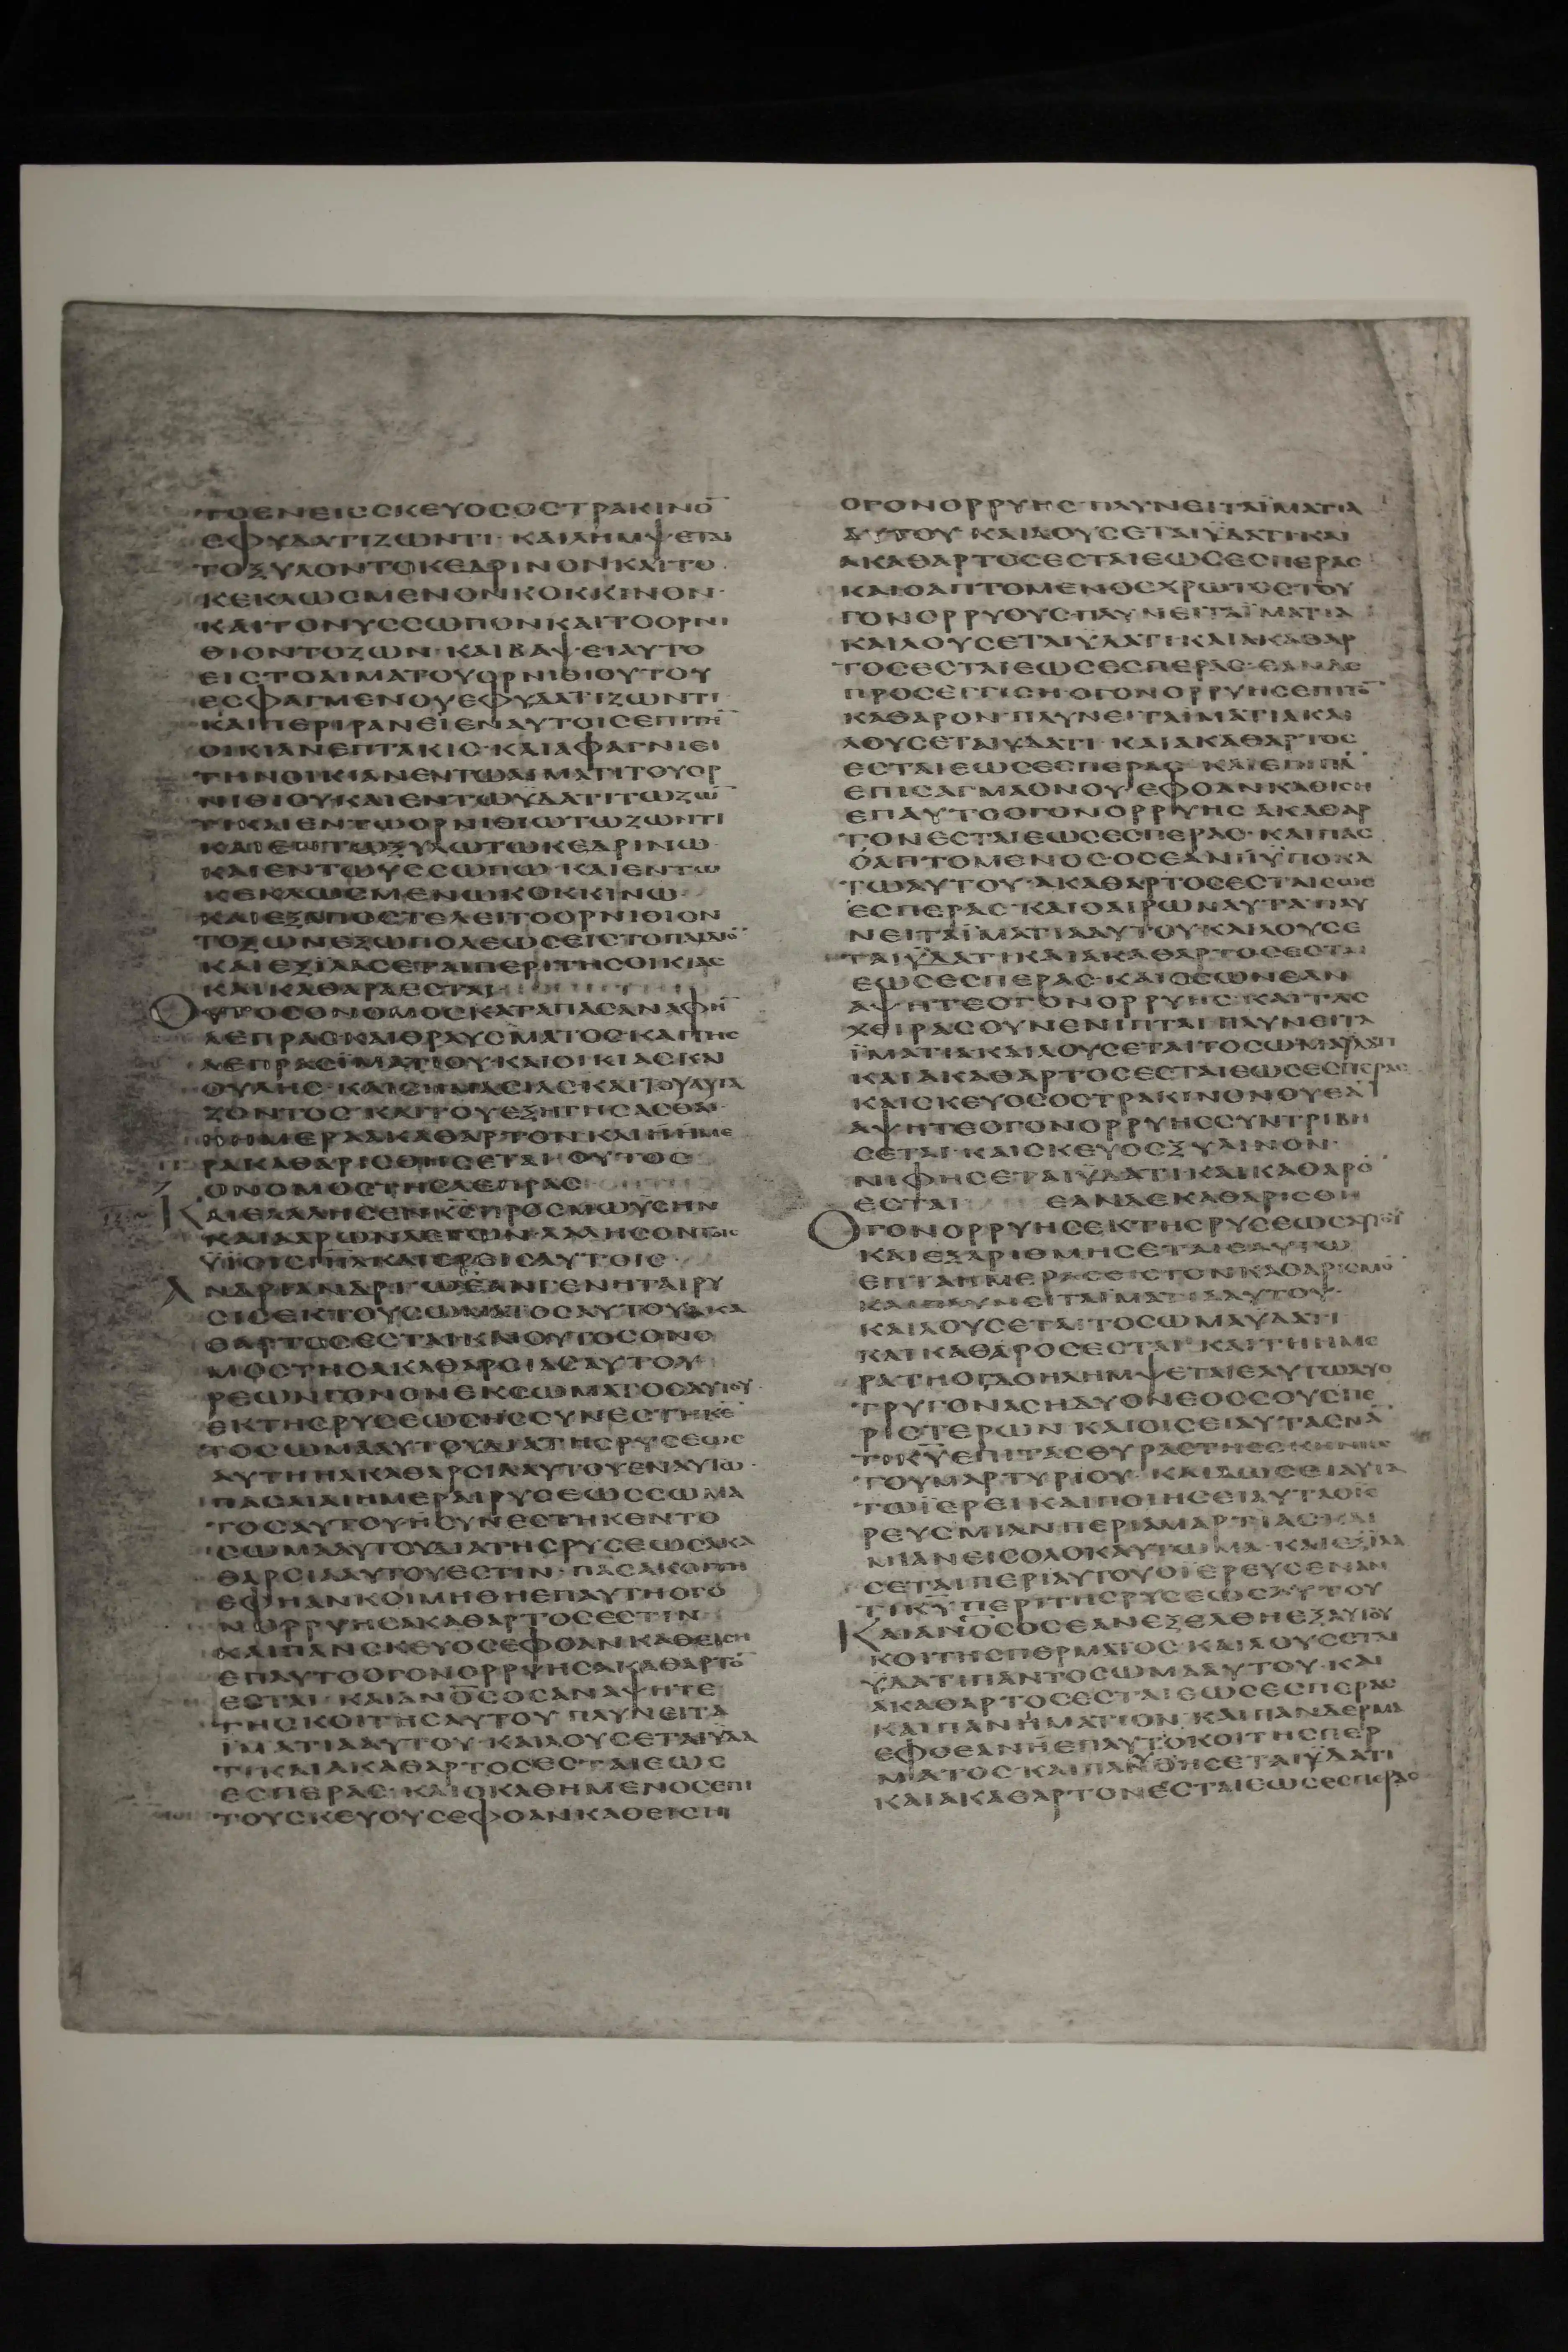 ΤΟΕΝΕΙϹϹΚΕΥΟϹΟϹΤΡΑΚΙΝΟ̅
ΕΦΥΔΑΤΙΖΩΝΤΙ· ΚΑΙΛΗΜΨΕΤΑΙ
ΤΟΞΥΛΟΝΤΟΚΕΔΡΙΝΟΝΚΑΙΤΟ
ΚΕΚΛΩϹΜΕΝΟΝΚΟΚΚΙΝΟΝ·
ΚΑΙΤΟΝΥϹϹΩΠΟΝΚΑΙΤΟΟΡΝΙ
ΘΙΟΝΤΟΖΩΝ· ΚΑΙΒΑΨΕΙΑΥΤΟ
ΕΙϹΤΟΑΙΜΑΤΟΥΟΡΝΙΘΙΟΥΤΟΥ
ΕϹΦΑΓΜΕΝΟΥΕΦΥΔΑΤΙΖΩΝΤΙ
ΚΑΙΠΕΡΙΡΑΝΕΙΕΝΑΥΤΟΙϹΕΠΙΤΗ̅
ΟΙΚΙΑΝΕΠΤΑΚΙϹ· ΚΑΙΑΦΑΓΝΙΕΙ
ΤΗΝΟΙΚΙΑΝΕΝΤΩΑΙΜΑΤΙΤΟΥΟΡ
ΝΙΘΙΟΥΚΑΙΕΝΤΩΫΔΑΤΙΤΩΖΩ̅
ΤΙΚΑΙΕΝΤΩΟΡΝΙΘΙΩΤΩΖΩΝΤΙ
ΚΑΙΕΝΤΩΞΥΛΩΤΩΚΕΔΡΙΝΩ
ΚΑΙΕΝΤΩΥϹϹΩΠΩ· ΚΑΙΕΝΤΩ
ΚΕΚΛΩϹΜΕΝΩΚΟΚΚΙΝΩ
ΚΑΙΕΞΑΠΟϹΤΕΛΕΙΤΟΟΡΝΙΘΙΟΝ
ΤΟΖΩΝΕΞΩΠΟΛΕΩϹΕΙϹΤΟΠΑΙΔΙΟ̅
ΚΑΙΕΞΙΛΑϹΕΤΑΙΠΕΡΙΤΗϹΟΙΚΙΑϹ
ΚΑΙΚΑΘΑΡΑΕϹΤΑΙ
ΟΥΤΟϹΟΝΟΜΟϹΚΑΤΑΠΑϹΑΝΑΦΗ̅
ΛΕΠΡΑϹΚΑΙΘΡΑΥϹΜΑΤΟϹΚΑΙΤΗϹ
ΛΕΠΡΑϹΪΜΑΤΙΟΥ· ΚΑΙΟΙΚΙΑϹΚΑΙ
ΟΥΛΗϹ· ΚΑΙϹΗΜΑϹΙΑϹΚΑΙΤΟΥΑΥΓΑ
ΖΟΝΤΟϹ· ΚΑΙΤΟΥΕΞΗΓΗϹΑϹΘΑΙ
ΗΗΜΕΡΑΑΚΑΘΑΡΤΟΝΚΑΙΗΗΜΕ
ΡΑΚΑΘΑΡΙϹΘΗϹΕΤΑΙ· ΟΥΤΟϹ
ΟΝΟΜΟϹΤΗϹΛΕΠΡΑϹ
ΚΑΙΕΛΑΛΗϹΕΝΚ̅Ϲ̅ΠΡΟϹΜΩΥϹΗΝ
ΚΑΙΑΑΡΩΝΛΕΓΩΝ· ΛΑΛΗϹΟΝΤΟΙϹ
ΫΪΟΙϹΙ̅Η̅Λ̅ΚΑΙΕΡΕΙϹΑΥΤΟΙϹ·
ΑΝΔΡΙΑΝΔΡΙΩΕΑΝΓΕΝΗΤΑΙΡΥ
ϹΙϹΕΚΤΟΥϹΩΜΑΤΟϹΑΥΤΟΥΑΚΑ
ΘΑΡΤΟϹΕϹΤΑΙΚΑΙΟΥΤΟϹΟΝΟ
ΜΟϹΤΗϹΑΚΑΘΑΡϹΙΑϹΑΥΤΟΥ
ΡΕΩΝΓΟΝΟΝΕΚϹΩΜΑΤΟϹΑΥΤΟΥ
ΕΚΤΗϹΡΥϹΕΩϹΗϹϹΥΝΕϹΤΗΚΕ̅
ΤΟϹΩΜΑΑΥΤΟΥΔΙΑΤΗϹΡΥϹΕΩϹ
ΑΥΤΗΗΑΚΑΘΑΡϹΙΑΑΥΤΟΥΕΝΑΥΤΩ·
ΠΑϹΑΙΑΙΗΜΕΡΑΙΡΥϹΕΩϹϹΩΜΑ
ΤΟϹΑΥΤΟΥΗϹΥΝΕϹΤΗΚΕΝΤΟ
ϹΩΜΑΑΥΤΟΥΔΙΑΤΗϹΡΥϹΕΩϹΑΚΑ
ΘΑΡϹΙΑΑΥΤΟΥΕϹΤΙΝ· ΠΑϹΑΚΟΙΤΗ
ΕΦΗΑΝΚΟΙΜΗΘΗΕΠΑΥΤΗΟΓΟ
ΝΟΡΡΥΗϹΑΚΑΘΑΡΤΟϹΕϹΤΙΝ
ΚΑΙΠΑΝϹΚΕΥΟϹΕΦΟΑΝΚΑΘΕΙϹΗ
ΕΠΑΥΤΟΟΓΟΝΟΡΡΥΗϹΑΚΑΘΑΡΤΟ̅
ΕϹΤΑΙ· ΚΑΙΑΝΟ̅Ϲ̅ΟϹΑΝΑΨΗΤΕ
ΤΗϹΚΟΙΤΗϹΑΥΤΟΥ ΠΛΥΝΕΙΤΑ
ΪΜΑΤΙΑΑΥΤΟΥ· ΚΑΙΛΟΥϹΕΤΑΙΫΔΑ
ΤΙΚΑΙΑΚΑΘΑΡΤΟϹΕϹΤΑΙΕΩϹ
ΕϹΠΕΡΑϹ· ΚΑΙΟΚΑΘΗΜΕΝΟϹΕΠΙ
ΤΟΥϹΚΕΥΟΥϹΕΦΟΑΝΚΑΘΕΙϹΗ
ΟΓΟΝΟΡΡΥΗϹ· ΠΛΥΝΕΙΤΑΪΜΑΤΙΑ
ΑΥΤΟΥ ΚΑΙΛΟΥϹΕΤΑΙΫΔΑΤΙΚΑΙ
ΑΚΑΘΑΡΤΟϹΕϹΤΑΙΕΩϹΕϹΠΕΡΑϹ
ΚΑΙΟΑΠΤΟΜΕΝΟϹΧΡΩΤΟϹΤΟΥ
ΓΟΝΟΡΡΥΟΥϹ· ΠΛΥΝΕΙΤΑΪΜΑΤΙΑ
ΚΑΙΛΟΥϹΕΤΑΙΫΔΑΤΙ· ΚΑΙΑΚΑΘΑΡ
ΤΟϹΕϹΤΑΙΕΩϹΕϹΠΕΡΑϹ· ΕΑΝΔΕ
ΠΡΟϹΕΓΓΙϹΗ· ΟΓΟΝΟΡΡΥΗϹΕΠΙΤΟ̅
ΚΑΘΑΡΟΝ· ΠΛΥΝΕΙΤΑΪΜΑΤΙΑΚΑΙ
ΛΟΥϹΕΤΑΙΫΔΑΤΙ· ΚΑΙΑΚΑΘΑΡΤΟϹ
ΕϹΤΑΙΕΩϹΕϹΠΕΡΑϹ· ΚΑΙΕΠΙΠΑ̅
ΕΠΙϹΑΓΜΑΟΝΟΥ· ΕΦΟΑΝΚΑΘΙϹΗ
ΕΠΑΥΤΟΟΓΟΝΟΡΡΥΗϹ ΑΚΑΘΑΡ
ΤΟΝΕϹΤΑΙΕΩϹΕϹΠΕΡΑϹ· ΚΑΙΠΑϹ
ΟΑΠΤΟΜΕΝΟϹ· ΟϹΕΑΝΗΫΠΟΚΑ
ΤΩΑΥΤΟΥ· ΑΚΑΘΑΡΤΟϹΕϹΤΑΙΕΩϹ
ΕϹΠΕΡΑϹ· ΚΑΙΟΑΙΡΩΝΑΥΤΑΠΛΥ
ΝΕΙΤΑΪΜΑΤΙΑΑΥΤΟΥ· ΚΑΙΛΟΥϹΕ
ΤΑΙΫΔΑΤΙΚΑΙΑΚΑΘΑΡΤΟϹΕϹΤΑΙ
ΕΩϹΕϹΠΕΡΑϹ· ΚΑΙΟϹΩΝΕΑΝ
ΑΨΗΤΕΟΓΟΝΟΡΡΥΗϹ· ΚΑΙΤΑϹ
ΧΕΙΡΑϹΟΥΝΕΝΙΠΤΑΙ· ΠΛΥΝΕΙΤΑ
ΪΜΑΤΙΑΚΑΙΛΟΥϹΕΤΑΙΤΟϹΩΜΑΫΔΑΤΙ
ΚΑΙΑΚΑΘΑΡΤΟϹΕϹΤΑΙΕΩϹΕϹΠΕΡΑϹ
ΚΑΙϹΚΕΥΟϹΟϹΤΡΑΚΙΝΟΝΟΥΕΑ̅
ΑΨΗΤΕΟΓΟΝΟΡΡΥΗϹϹΥΝΤΡΙΒΗ
ϹΕΤΑΙ· ΚΑΙϹΚΕΥΟϹΞΥΛΙΝΟΝ·
ΝΙΦΗϹΕΤΑΙΫΔΑΤΙΚΑΙΚΑΘΑΡΟ̅
ΕϹΤΑΙ ΕΑΝΔΕΚΑΘΑΡΙϹΘΗ
ΟΓΟΝΟΡΡΥΗϹΕΚΤΗϹΡΥϹΕΩϹΑΥΤΟΥ
ΚΑΙΕΞΑΡΙΘΜΗϹΕΤΑΙΕΑΥΤΩ
ΕΠΤΑΗΜΕΡΑϹΕΙϹΤΟΝΚΑΘΑΡΙϹΜΟ̅
ΚΑΙΠΛΥΝΕΙΤΑΪΜΑΤΙΑΑΥΤΟΥ·
ΚΑΙΛΟΥϹΕΤΑΙΤΟϹΩΜΑΫΔΑΤΙ
ΚΑΙΚΑΘΑΡΟϹΕϹΤΑΙ· ΚΑΙΤΗΗΜΕ
ΡΑΤΗΟΓΔΟΗΛΗΜΨΕΤΑΙΕΑΥΤΩΔΥΟ
ΤΡΥΓΟΝΑϹΗΔΥΟΝΕΟϹϹΟΥϹΠΕ
ΡΙϹΤΕΡΩΝ ΚΑΙΟΙϹΕΙΑΥΤΑΕΝΑ̅
ΤΙΚ̅Υ̅ΕΠΙΤΑϹΘΥΡΑϹΤΗϹϹΚΗΝΗϹ
ΤΟΥΜΑΡΤΥΡΙΟΥ· ΚΑΙΔΩϹΕΙΑΥΤΑ
ΤΩΪΕΡΕΙΚΑΙΠΟΙΗϹΕΙΑΥΤΑΟΪΕ
ΡΕΥϹΜΙΑΝΠΕΡΙΑΜΑΡΤΙΑϹΚΑΙ
ΜΙΑΝΕΙϹΟΛΟΚΑΥΤΩΜΑ· ΚΑΙΕΞΙΛΑ
ϹΕΤΑΙΠΕΡΙΑΥΤΟΥΟΪΕΡΕΥϹΕΝΑΝ
ΤΙΚ̅Υ̅ΠΕΡΙΤΗϹΡΥϹΕΩϹΑΥΤΟΥ
ΚΑΙΑΝΟ̅Ϲ̅ΟϹΕΑΝΕΞΕΛΘΗΕΞΑΥΤΟΥ
ΚΟΙΤΗϹΠΕΡΜΑΤΟϹ· ΚΑΙΛΟΥϹΕΤΑΙ
ΫΔΑΤΙΠΑΝΤΟϹΩΜΑΑΥΤΟΥ· ΚΑΙ
ΑΚΑΘΑΡΤΟϹΕϹΤΑΙΕΩϹΕϹΠΕΡΑϹ
ΚΑΙΠΑΝΗΜΑΤΙΟΝ· ΚΑΙΠΑΝΔΕΡΜΑ
ΕΦΟΕΑΝΗΕΠΑΥΤΟΚΟΙΤΗϹΠΕΡ
ΜΑΤΟϹ· ΚΑΙΠΛΥΘΗϹΕΤΑΙΫΔΑΤΙ
ΚΑΙΑΚΑΘΑΡΤΟΝΕϹΤΑΙΕΩϹΕϹΠΕΡΑϹ